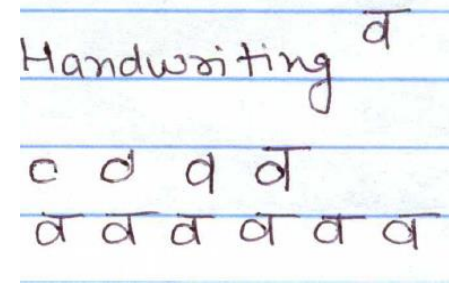 Handwriting व
c d q व
व व व व व व